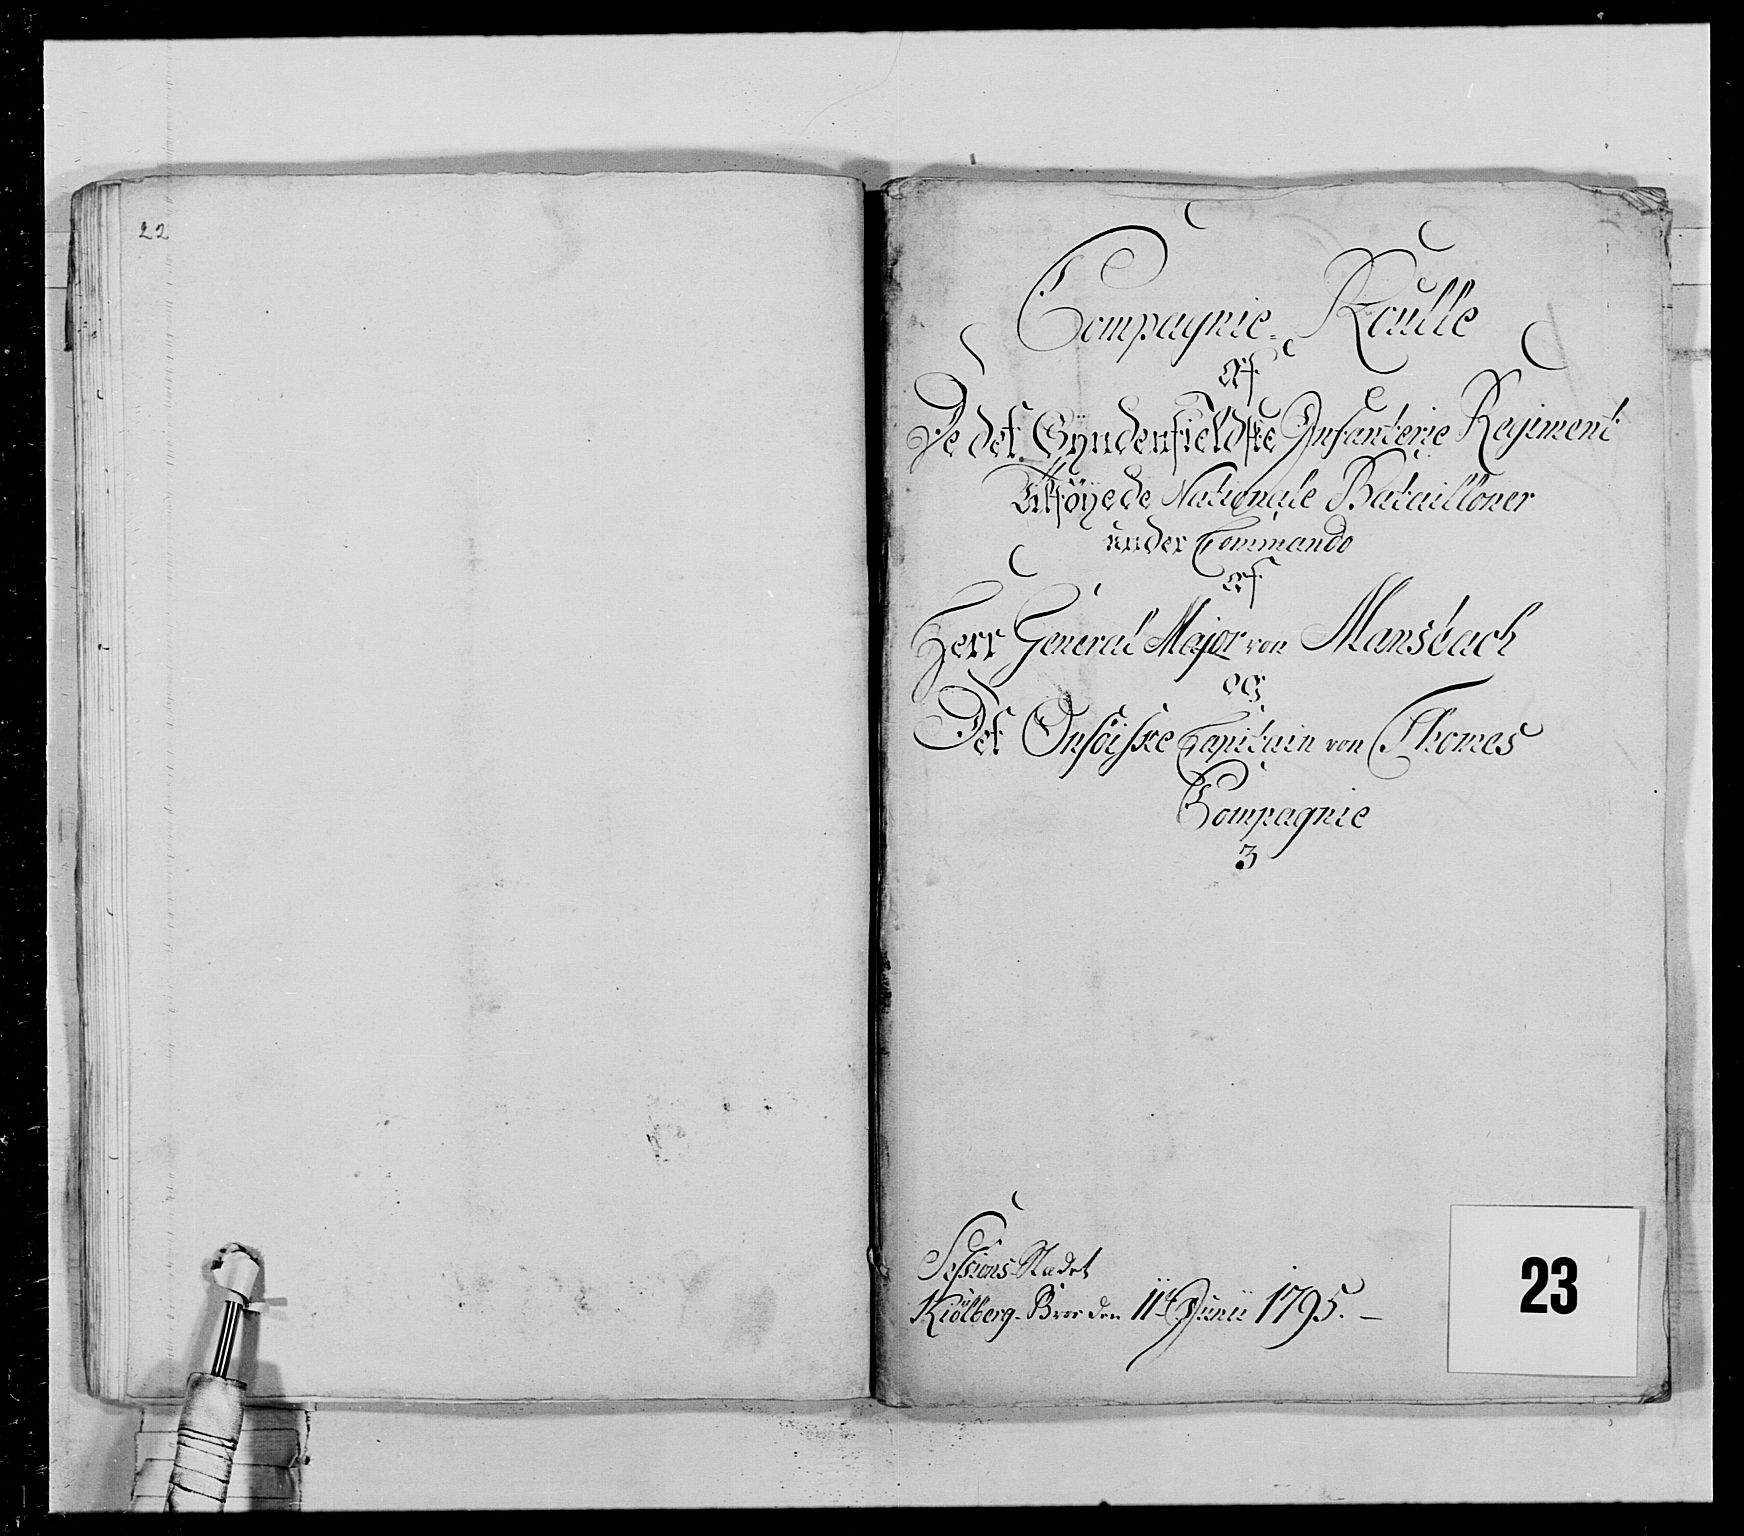 22
Compagnie-Roulle
af
De det Syndenfieldske Infanterie Regiment
tilføyede Nationale Batailloner
under Commando
af
Herr General Major von Mansbach
og
Det Onsöiske Capitain von Thomes
Compagnie
3
Sessions-Stædet
Kiölberg-Broe den 11te Junii 1795.—
23